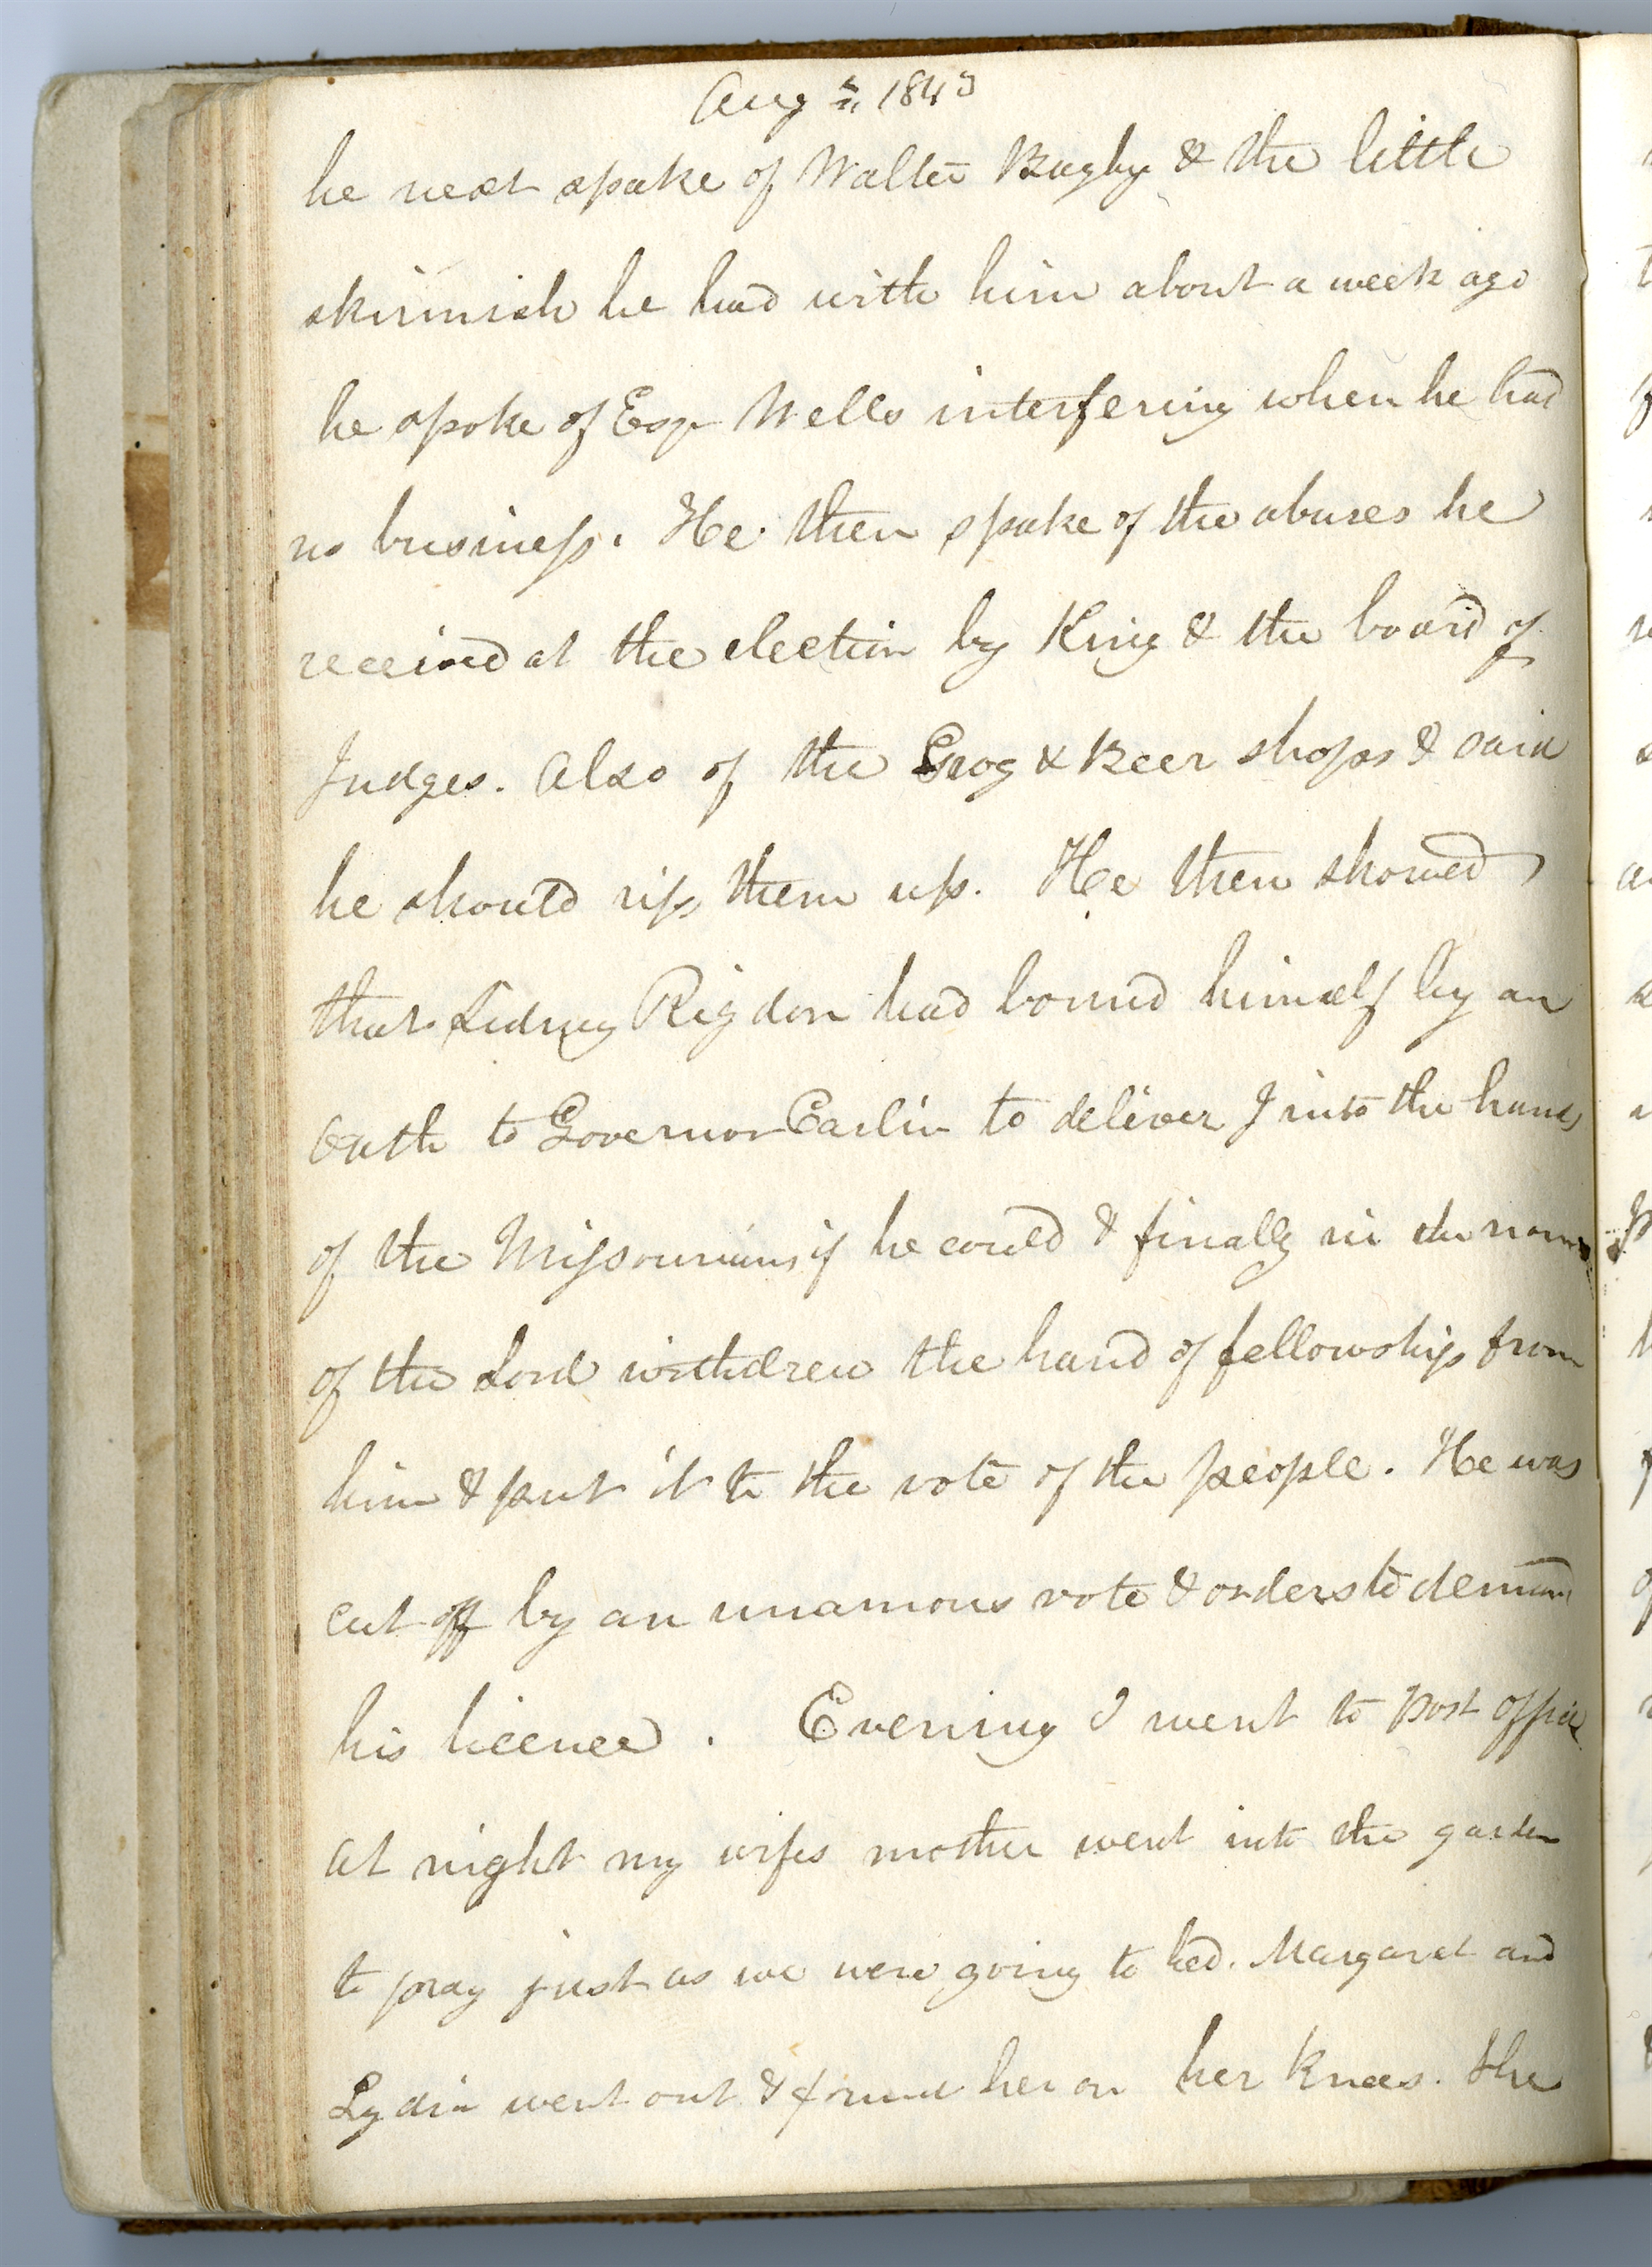 Aug 1843
he next spake of Walter Bagby & the little
skirmish he had with him about a week ago
he spoke of Esqr Wells interfering when he had
no business. He then spake of the abuses he
received at the election by King & the board of
Judges. Also of the Grog & Beer shops & said
he should rip them up. He then showed
that Sidney Rigdon had bound himself by an
Oath to Governor Carlin to deliver J into the hands
of the Missourians if he could & finally in the name
of the Lord withdrew the hand of fellowship from
him & put it to the vote of the people. He was
cut off by an unamous vote & orders to demand
his licence. Evening I went to post office
at night my wifes mother went into the garden
to pray just as we were going to bed. Margaret and
Lydia went out & found her on her knees. She